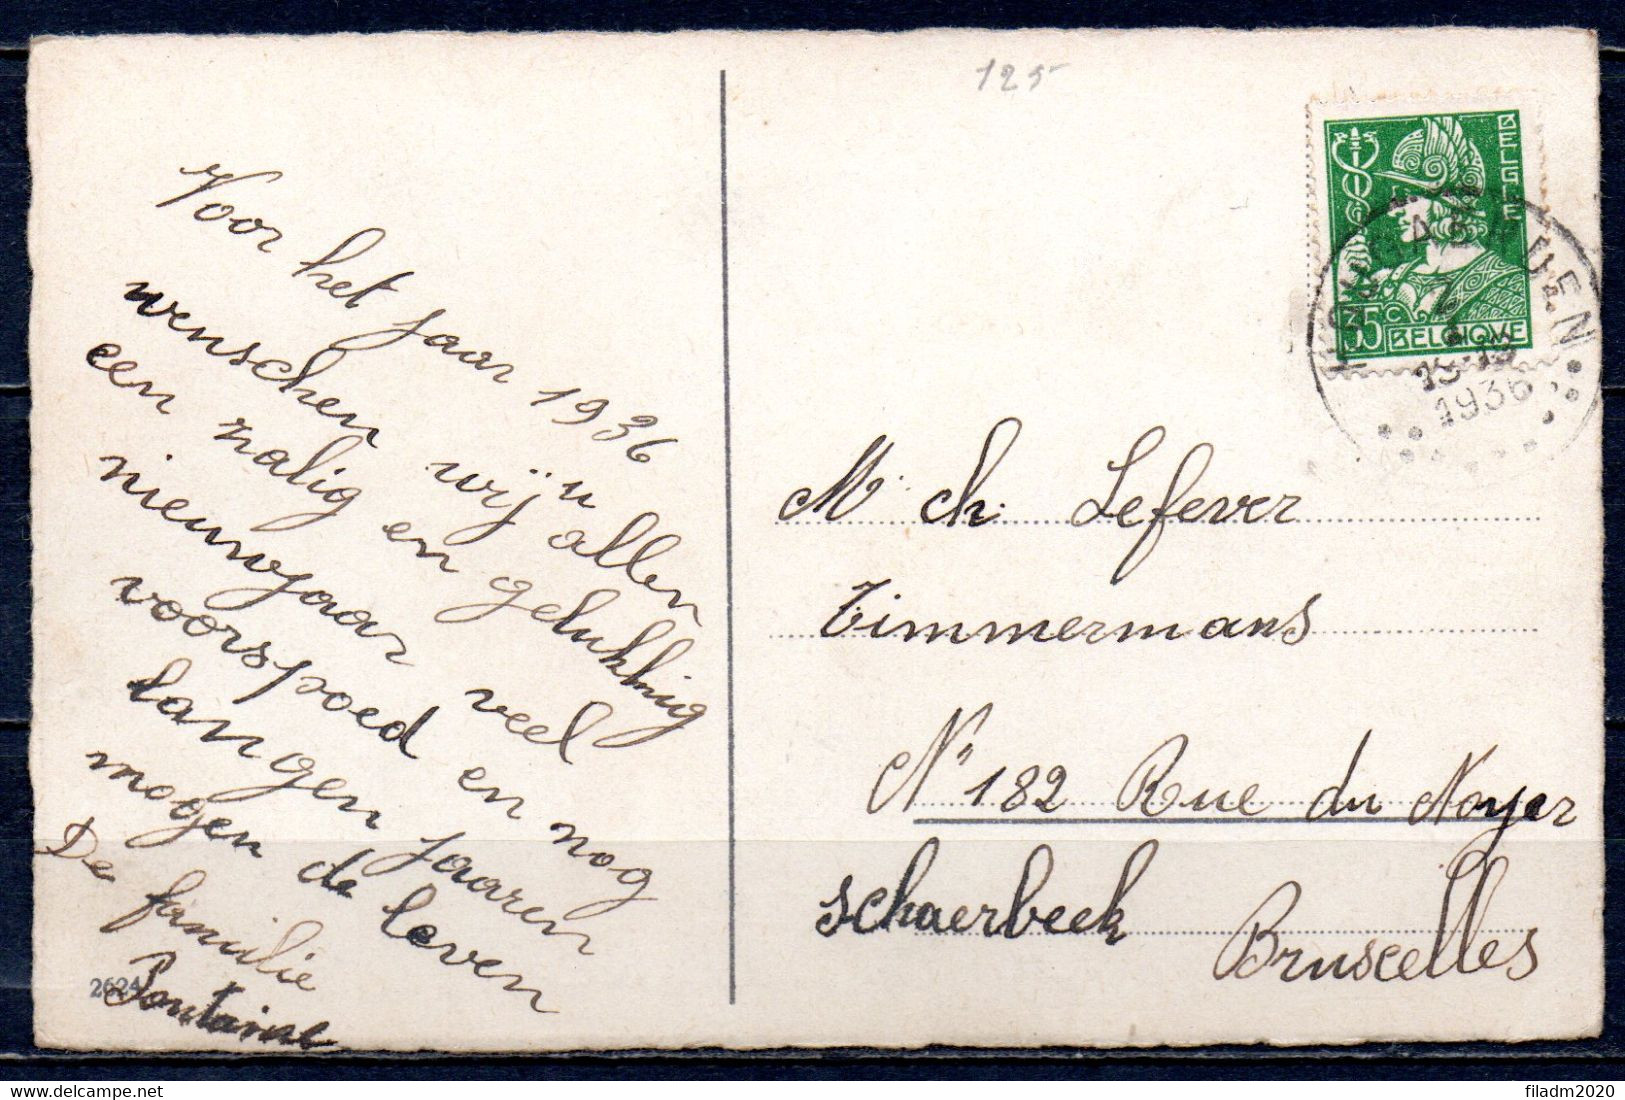 125
Voor het jaar 1936
wenschen wij u allen
een zalig en gelukkig
nieuwjaar veel
voorspoed en nog
langen jaaren
mogen de leven
De familie
Pontaine
2624
BELGIE
35 C
BELGIQUE
13-15
1936
Mr ch. Lefever
Timmermans
N° 182 Rue du Noyer
schaerbeek
Bruscelles
delcampe.net
filadm2020